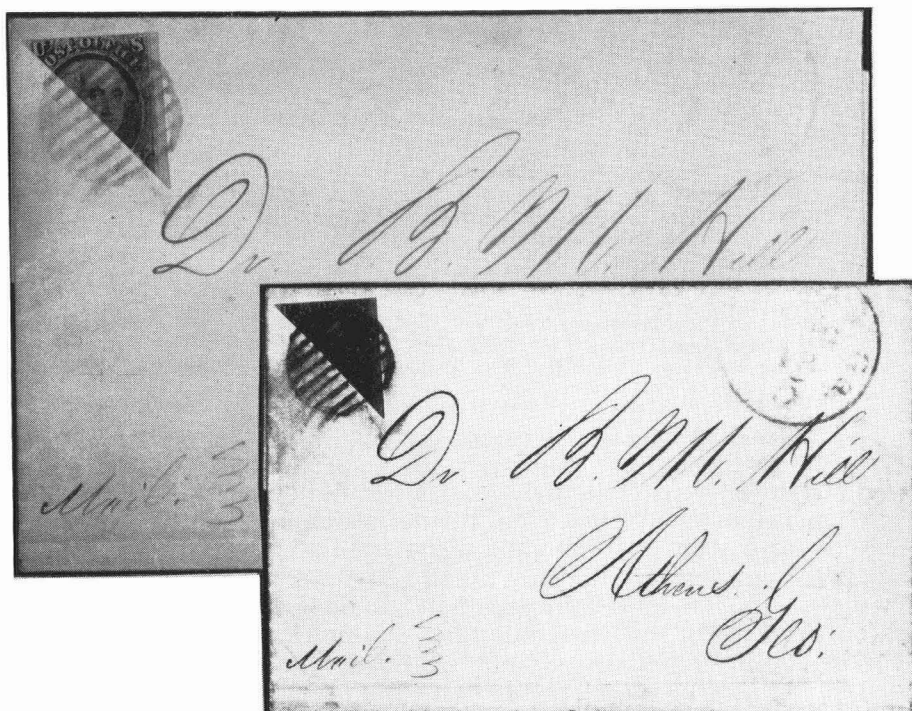 Dr. B. M. Hill
Mail.
Dr. B. M. Hill
Athens.
Geo:
Mail.